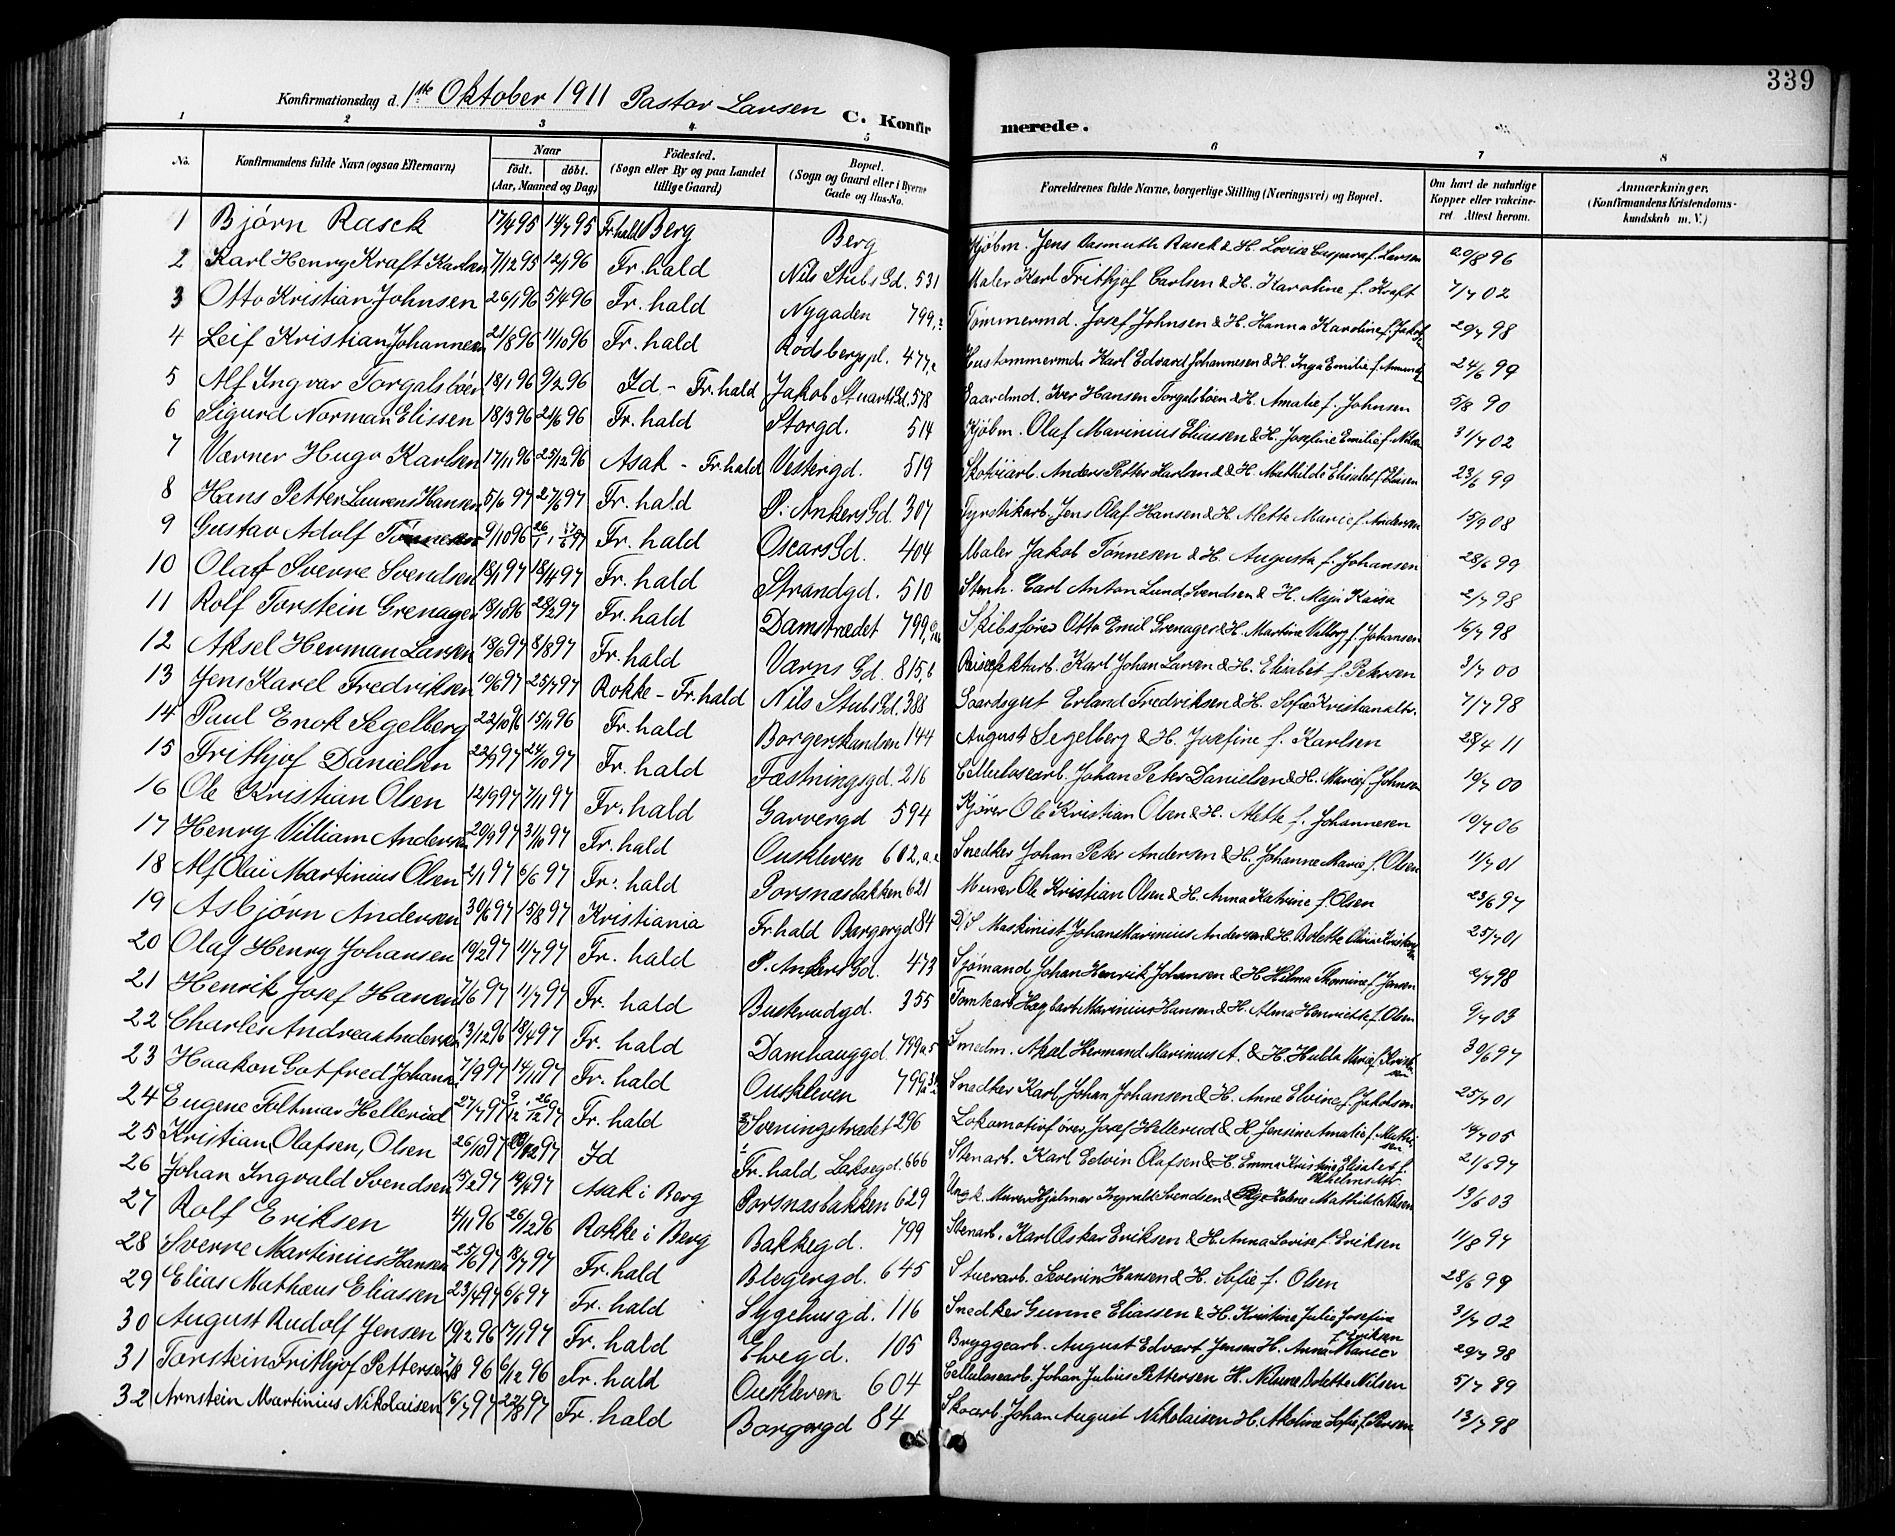 339
Konfirmationsdag d. 1ste Oktober 1911 Pastor Larsen C. Konfir merede.
1 2 3 4 5 6 7 8
No. Konfirmandens fulde Navn (ogsaa Efternavn) Naar födt. döbt. (Aar, Maaned og Dag) Födested. (Sogn eller By og paa Landet tillige Gaard) Bopæl. (Sogn og Gaard eller i Byerne Gade og Hus-No. Forældrenes fulde Navne, borgerlige Stilling (Næringsvei) og Bopæl. Om havt de naturlige Kopper eller vakcineret Attest herom. Anmærkninger. (Konfirmandens Kristendomskundskab m. V.)
1 Bjørn Rasck 17/4 95 14/7 95 Fr.hald Berg Berg Kjøbm. Jens Rasck & H. Lovise f. Larsen 20/8 96
2 Karl Henry Kraft Karlsen 7/12 95 12/1 96 Fr.hald Nils Stubs Gd. 531 Maler Karl Frithjof Carlsen & H. Karoline f. Kraft 7/7 02
3 Otto Kristian Johnsen 26/1 96 5/4 96 Fr.hald Nygaden 799 Tømmermd. Josef Johnsen & H. Hanna Karoline f. 20/7 98
4 Leif Kristian Johannesen 21/8 96 11/10 96 Fr.hald Rødsbergpl. 477 Hustømmermd. Karl Edvard Johannesen & H. Inga Emilie f. 24/6 99
5 Alf Ingvar Torgalsbøen 18/1 96 9/2 96 Id - Fr.hald Jakob Stuarts Gd. 578 Gaardmd. Iver Hansen Torgalsbøen & H. Amalie f. Johnsen 5/8 90
6 Sigurd Norman Elissen 18/3 96 21/6 96 Fr.hald Storgd. 514 Kjøbm. Olaf Marinius Eliassen & H. Josefine Emilie f. Nilsen 31/7 02
7 Værner Hugo Karlsen 17/11 96 25/12 96 Asak - Fr.hald Vestergd. 519 Skotøiarb. Anders Petter Karlsen & H. Mathilde Elisabet f. Eliasen 23/6 99
8 Hans Petter Laurens Hansen 5/6 97 27/6 97 Fr.hald P. Ankers Gd. 307 Fyrstikarb. Jens Olaf Hansen & H. Alette Marie f. Andersen 15/9 08
9 Gustav Adolf Tønnesen 9/10 96 Fr.hald Oscars Gd. 404 Maler Jakob Tønnesen & H. Augusta f. Johansen 28/6 99
10 Olaf Sverre Svendsen 18/1 97 18/4 97 Fr.hald Strandgd. 510 Stenh. Carl Anton Lund Svendsen & H. Maja Kaisa 2/7 98
11 Rolf Torstein Grenager 18/10 96 28/2 97 Fr.hald Damstrædet 799 Skibsfører Otto Emil Grenager & H. Martine Valborg f. Johansen 16/7 98
12 Aksel Herman Larsen 18/6 97 8/8 97 Fr.hald Værns Gd. 815,b Karl Johan Larsen & H. Elisabet f. Petersen 3/7 00
13 Jens Karel Fredriksen 10/6 97 25/7 97 Rokke - Fr.hald Nils Stubs Gd. 388 Gaardsgut Erland Fredriksen & H. Sofie Kristiansdtr. 7/7 98
14 Paul Enok Segelberg 22/10 96 15/11 96 Fr.hald Borgerskandsen 144 August Segelberg & H. Josefine f. Karlsen 28/4 11
15 Frithjof Danielsen 22/9 97 24/10 97 Fr.hald Fæstningsgd. 216 Cellulosearb. Johan Peter Danielsen & H. Marie f. Johnsen 19/7 00
16 Ole Kristian Olsen 12/9 97 7/11 97 Fr.hald Garvergd 594 Kjører Ole Kristian Olsen & H. Alette f. Johannesen 19/7 06
17 Henry Villiam Andersen 20/9 97 31/10 97 Fr.hald Ouskleven 602 Snedker Johan Peter Andersen & H. Johanne Marie f. Olsen 11/7 01
18 Alf Olai Martinius Olsen 2/1 97 6/6 97 Fr.hald Porsnæsbakken 621 Murer Ole Kristian Olsen & H. Anna Katrine f. Olsen 23/6 97
19 Asbjørn Andersen 30/6 97 15/8 97 Kristiania Fr.hald Borgergd 84 D/S Maskinist Johan Marinius Andersen & H. Bolette Olivia 25/7 01
20 Olaf Henry Johansen 19/2 97 11/7 97 Fr. hald P. Ankers Gd. 473 Sjømand Johan Henrik Johansen & H. Hilma Thomine f. Jansen 2/7 98
21 Henrik Josef Hansen 7/6 97 11/7 97 Fr. hald Buskrudgd. 355 Tomtearb Hagbart Marinius Hansen & H. Alma Henriette f. Olsen 9/7 03
22 Charles Andreas Andersen 13/12 96 18/4 97 Fr. hald Damhauggd 799 a 5 Smedm. Axel Hermand Marinius A. & H. Hulda Marie f. Kristensen 30/6 97
23 Haakon Gotfred Johans. 7/9 97 14/11 97 Fr. hald Ouskleven 799 Snedker Karl Johan Johansen & H. Anne Elvine f. Jakobsen 25/7 01
24 Eugene Foltmar Hellerud 27/7 97 26/12 97 Fr. hald Sveningstrædet 296 Lokomotivfører Josef Hellerud & H. Jensine Amalie f. Mathisen 14/7 05
25 Kristian Olafsen, Olsen 26/10 97 Id Fr. hald Laksegd. 666 Stenarb. Karl Edvin Olafsen & H. Emma Kristine Elisabet f. Vilhelmsdtr 21/6 97
26 Johan Ingvald Svendsen 15/2 97 19/4 97 Asak i Berg Porsnæsbakken 629 Ungk. Murer Hjalmar Ingvald Svendsen & Pige Helene Mathilda Nilsen 13/6 03
27 Rolf Eriksen 4/11 96 26/12 96 Rokke i Berg Bakkegd. 799 Stenarb. Karl Oskar Eriksen & H. Anna Lovise f. Eriksen 11/8 97
28 Sverre Martinius Hansen 25/6 97 18/7 97 Fr.hald Blegergd. 645 Stuerarb. Severin Hansen & H. Sofie f. Olsen 28/6 99
29 Elias Mathæus Eliassen 23/4 97 6/6 97 Fr. hald Sygehusgd. 116 Snedker Gunne Eliassen & H. Kristine Julie Josefine f. Eriksen 31/7 02
30 August Rudolf Jensen 19/12 96 17/1 97 Fr. hald Elvegd. 105 Bryggearb. August Edvart Jensen H. Anna Marie 20/7 98
31 Torstein Frithjof Pettersen 7/8 96 6/12 96 Fr. hald Ouskleven 604 Cellulosearb. Johan Julius Pettersen H. Nilsine Bolette Nilsen 5/7 99
32 Arnstein Martinius Nikolaisen 6/7 97 22/8 97 Fr. hald Borgergd 84 Skoarb. Johan August Nikolaisen H. Akoline Sofie f. Persen 13/7 98